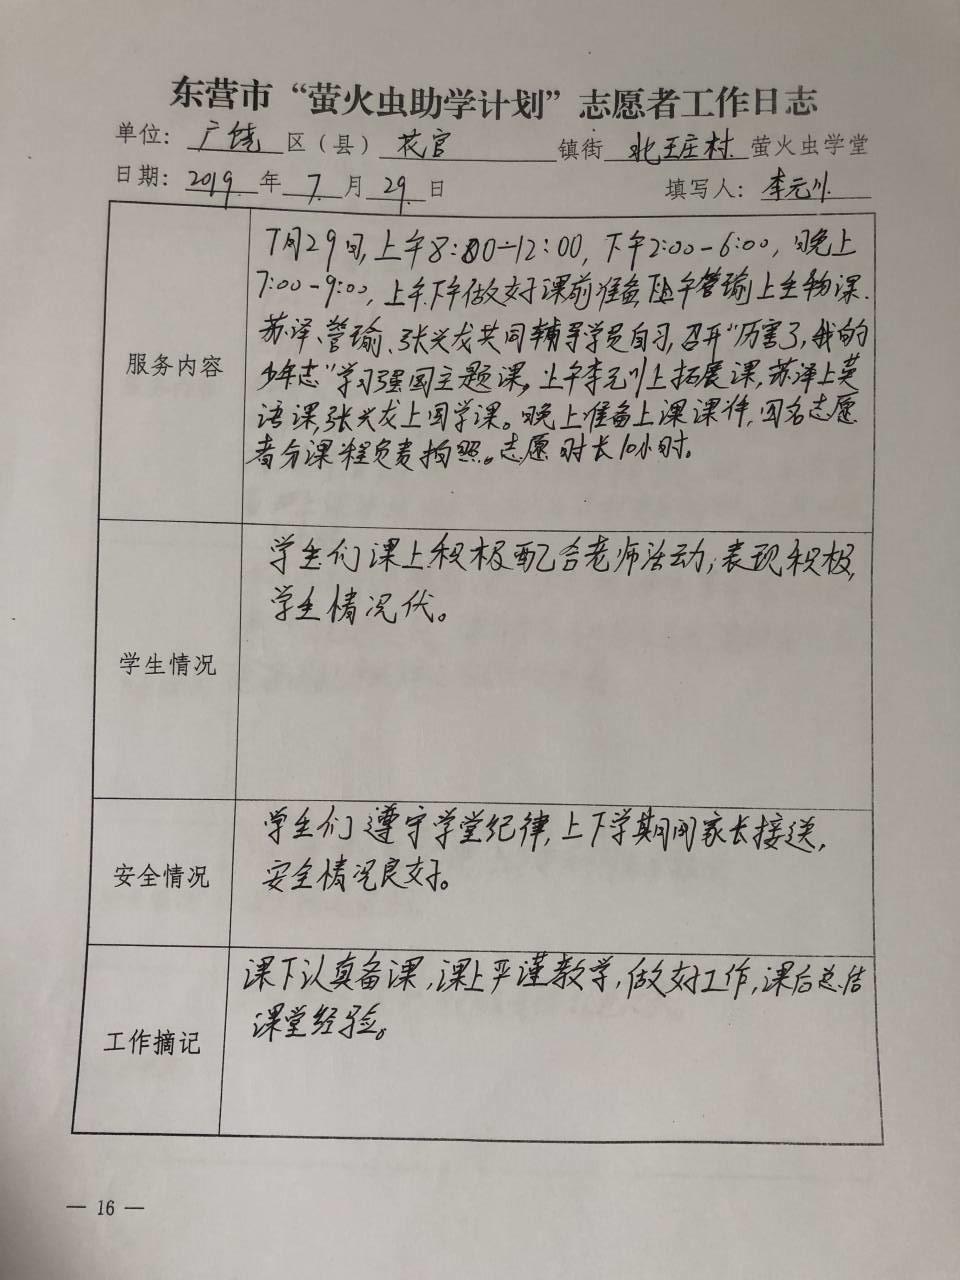 东营市“萤火虫助学计划”志愿者工作日志
单位：广饶区（县）花官镇街北王庄村萤火虫学堂
日期：2019年7月29日 填写人：李元川
服务内容
7月29日，上午8:00-12:00，下午2:00-6:00，晚上
7:00-9:00，上午、下午做好课前准备，下午管瑜上生物课.
苏泽、管瑜、张兴龙共同辅导学员自习，召开“厉害了，我的
少年志”学习强国主题课，上午李元川上拓展课，苏泽上英
语课，张兴龙上国学课。晚上准备上课课件，四名志愿
者分课程负责拍照。志愿时长10小时。
学生情况
学生们课上积极配合老师活动，表现积极，
学生情况优。
安全情况
学生们遵守学堂纪律，上下学期间家长接送，
安全情况良好。
工作摘记
课下认真备课，课上严谨教学，做好工作，课后总结
课堂经验。
— 16 —